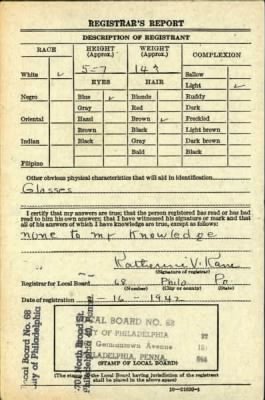 REGISTRAR'S REPORT
DESCRIPTION OF REGISTRANT
RACE HEIGHT (Approx.) WEIGHT (Approx.) COMPLEXION
5-7 143
White ✓ Sallow
EYES HAIR Light ✓
Negro Blue ✓ Blonde Ruddy
Gray Red Dark
Oriental Hazel Brown ✓ Freckled
Brown Black Light brown
Indian Black Gray Dark brown
Bald Black
Filipino
Other obvious physical characteristics that will aid in identification
Glasses
I certify that my answers are true; that the person registered has read or has had
read to him his own answers; that I have witnessed his signature or mark and that
all of his answers of which I have knowledge are true, except as follows:
none to my knowledge
Katherine V. Kane
(Signature of registrar)
Registrar for Local Board 68 Phila Pa
(Number) (City or county) (State)
Date of registration 16 - 1942
LOCAL BOARD NO. 68
CITY OF PHILADELPHIA
Germantown Avenue
PHILADELPHIA, PENNA.
(STAMP OF LOCAL BOARD)
(The stamp of the Local Board having jurisdiction of the registrant
shall be placed in the above space.)
Local Board No. 68
City of Philadelphia
North Broad St.
Philadelphia